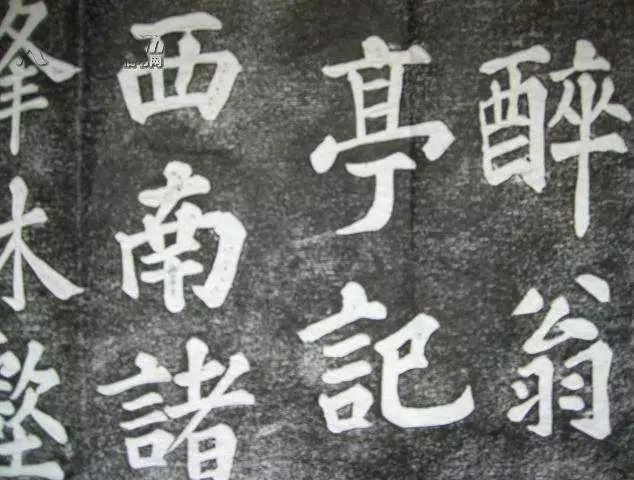 醉翁
亭記
西南諸
峰林壑